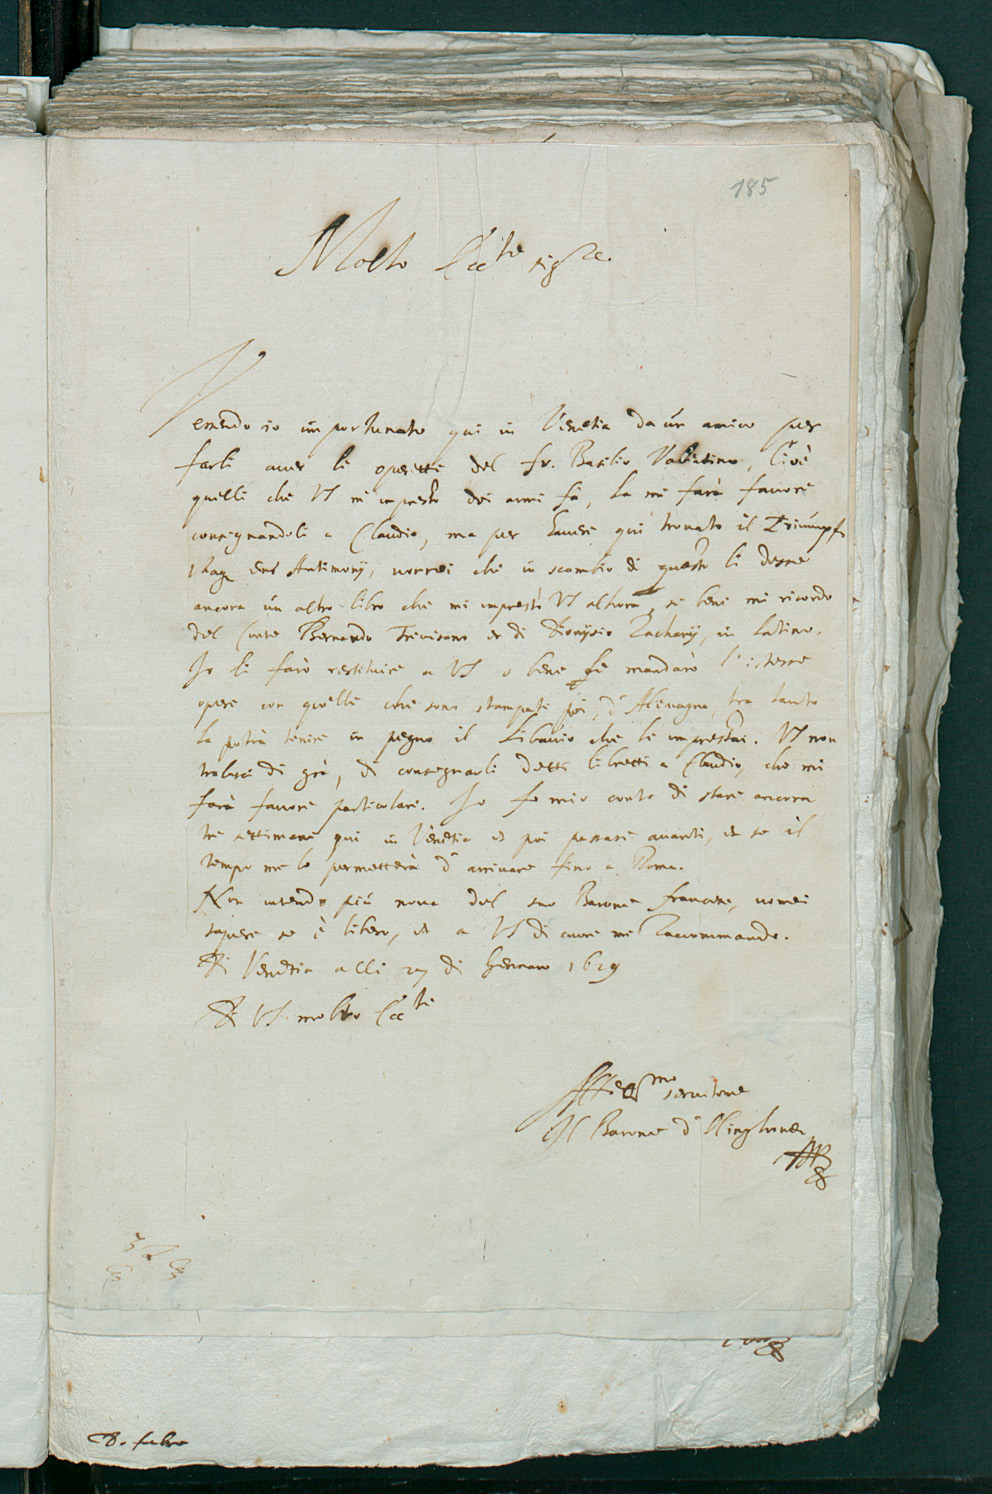 185
Molto Ecc.te sig.re
Venendo io importunato qui in Venetia da un amico per
farli aver li operetti del fr. Basilio Valentino, Cioè
quelli che VS mi imprestò doi anni fà, La mi farà favore
consegnandoli a Claudio, ma per havere qui trovato il Triumph
Antimonij, vorrei che in scambio di questo li desse
ancora un altro libro che mi imprestò VS alhora, se bene mi ricordo
del Conte Bernardo Trivisano et di Dionysio Zacharij, in latino.
Io li farò restituire a VS o bene mandarò l'istesse
opere con quelle che sono stampate poi, d'Alemagna, tra tanto
La potrà tenere in pegno il Libavio che li imprestai. VS non
trolasci di gra, di consegnarli detti libretti a Claudio, che mi
farà favore particolare. Io fo mio conto di stare ancora
tre settimane qui in Venetia et poi passare avanti, et se il
tempo me lo permetterà d'arrivare fino a Roma.
Non intendo più nova del suo Barone francese, vorrei
sapere se è libero, et a VS di cuore mi Raccommando.
Di Venetia alli 27 di Gennaro 1629
Di VS molto Ecc.te
Affett.mo servitore
Il Barone d'